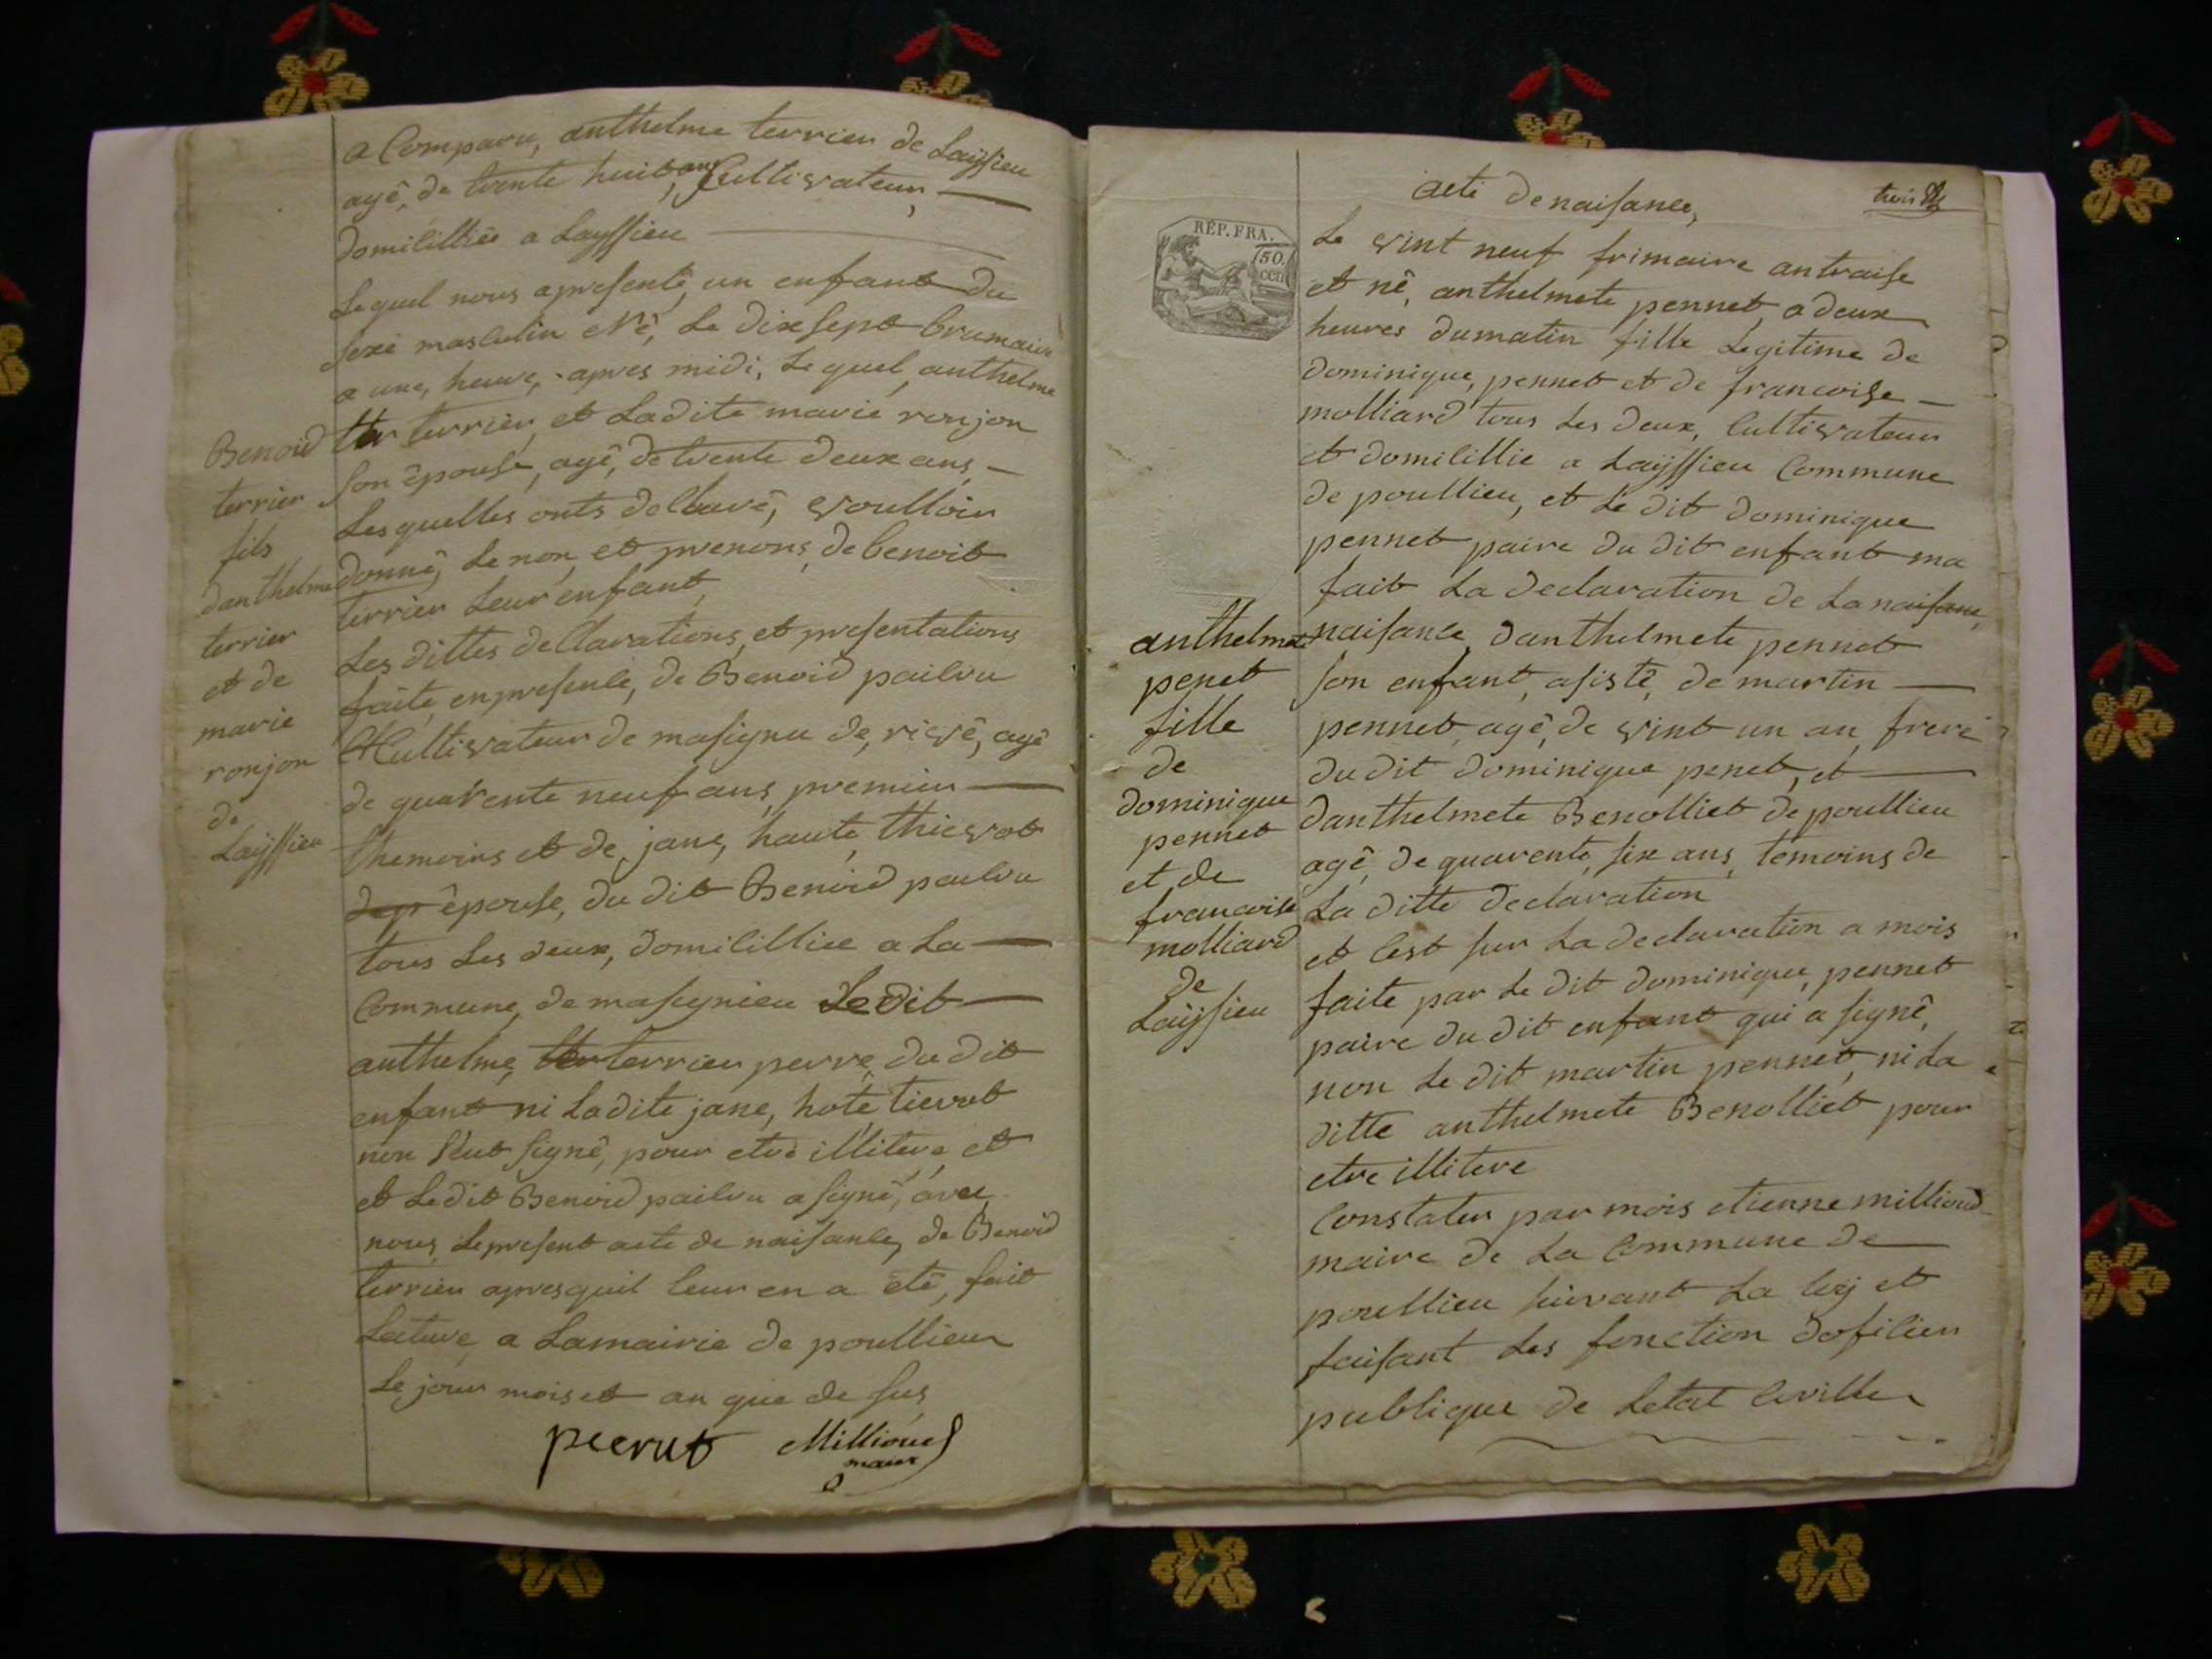 a Comparu, anthelme terrier de Laÿssieu
agê, de trente huit, ans Cultivateur,
domicilliée a Layssieu
Lequel nous a presenté, un enfant du
sexe masculin et Né, Le dix sept brumaire
a une, heure, apres midi, Lequel, anthelme
terrier, et Ladite marie ronjon
son êpouse, agê, de trente deux ans,
Lesquelles onts declarê, voulloir
donnê, Le non, et prenons, de benoit
terrier Leur enfant,
Les dittes declarations, et presentations
faite, en presence, de Benoid pailru
Cultivateur de masignu de, rivê, agê
de quarente neuf ans, premier
themoins et de, jane, haute, thievot
êpouse, du dit Benoid pailru
tous Les deux, domicilliee a La
Commune, de masignieu Ledit
anthelme, terrier perre, du dit
enfant ni Ladite jane, hote, tievot
non signê, pour etre illitere, et
et Ledit Benoid pailru a signê, avec
nous, Le present acte de naisance, de Benoid
terrier apres quil leur en a êtê, fait
Lecture, a La mairie de poullieu
Le jour mois et an que de sus
peerut Milliond
maire
Benoid
terrier
fils
danthelme
terrier
et de
marie
ronjon
de
Laÿssieu
acte de naisance,
trois
REP. FRA.
50.
cen
Le vint neuf frimaire an traise
et nê, anthelmete pennet, a deux
heures du matin fille Legitime de
dominique, pennet et de francoise
molliard tous Les deux, Cultivateur
et domicillie a Laÿssieu Commune
de poullieu, et Le dit dominique
pennet paire du dit enfant ma
fait La declaration de La naisanc
naisance, danthelmete pennet
son enfant, asistê, de martin
pennet, agê, de vint un an, frere
du dit dominique penet, et
danthelmete Benolliet de poullieu
agê, de quarente, six ans, temoins de
La ditte declaration
et Cest sur La declaration a mois
faite par Le dit dominique, pennet
paire du dit enfant qui a signê,
non Le dit martin pennet, ni La
ditte anthelmete Benolliet pour
etre illitere
Constater par mois etienne milliond
maire de La Commune de
poullieu suivant La loij et
faisant Les fonction doficier
publique de Letat Civille
anthelmete
penet
fille
de
dominique
pennet
et de
francoise
molliard
de
Laÿssieu